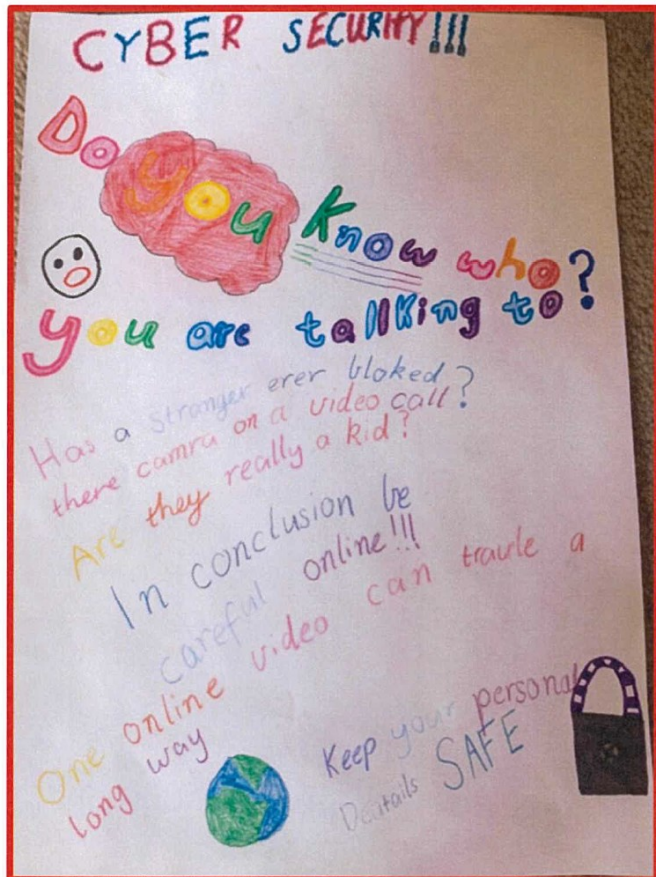 CYBER SECURITY!!!
Do you Know who
you are tallking to?
Has a stranger erer bloked
there camra on a video call?
Are they really a kid?
In conclusion be
careful online!!!
One online video can travle a
long way
Keep your personal
Deatails SAFE